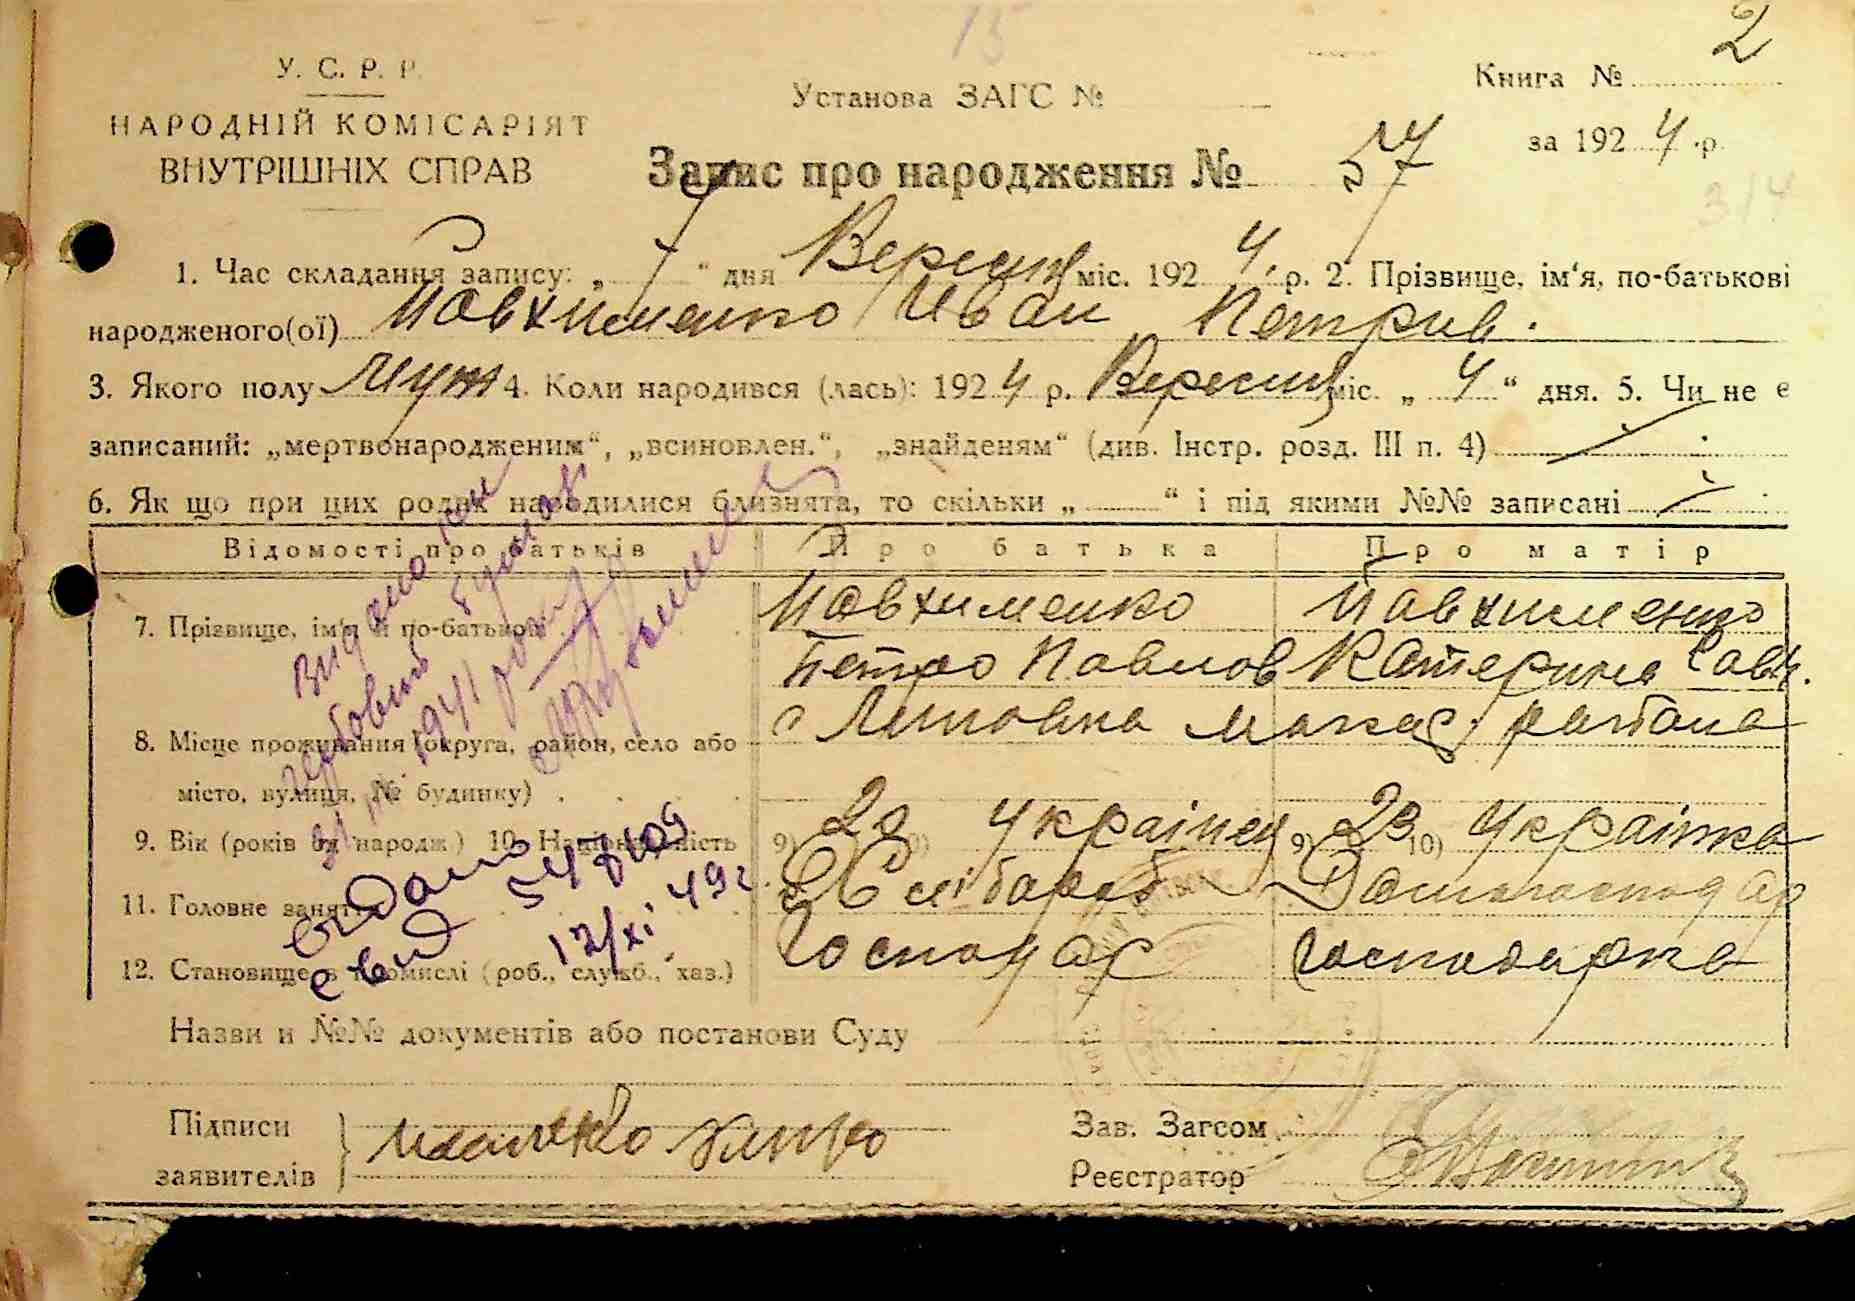 15
2
У. С. Р. Р.
НАРОДНІЙ КОМІСАРІЯТ
ВНУТРІШНІХ СПРАВ
Установа ЗАГС №
Книга №
за 1924 р.
Запис про народження № 57
314
1. Час складання запису: „ 7 “ дня Вересня міс. 1924 р. 2. Прізвище, ім‘я, по-батькові
народженого(ої) Павхименко Иван Петрив.
3. Якого полу муж 4. Коли народився (лась): 1924 р. Вересня міс. „ 4 “ дня. 5. Чи не є
записаний: „мертвонародженим“, „всиновлен.“, „знайденям“ (див. Інстр. розд. III п. 4)
6. Як що при цих родах народилися близнята, то скільки „ “ і під якими №№ записані
Відомості про батьків Про батька Про матір
7. Прізвище, ім‘я й по-батькові Павхименко Павхименко
Петро Павлов Катерина Сав.
8. Місце проживання (округа, район, село або
місто, вулиця, № будинку)
с Липовка Макар. района
9. Вік (років од народж.) 10. Національність 9) 10) Українец 9) 23 10) Українка
11. Головне заняття Хлібороб
12. Становище в промислі (роб., служб., хаз.) Господар Господарка
Видано
гербовий
1941 року
видано
свид
17/XI 49г
Назви и №№ документів або постанови Суду
Підписи
заявителів
Зав. Загсом
Реєстратор